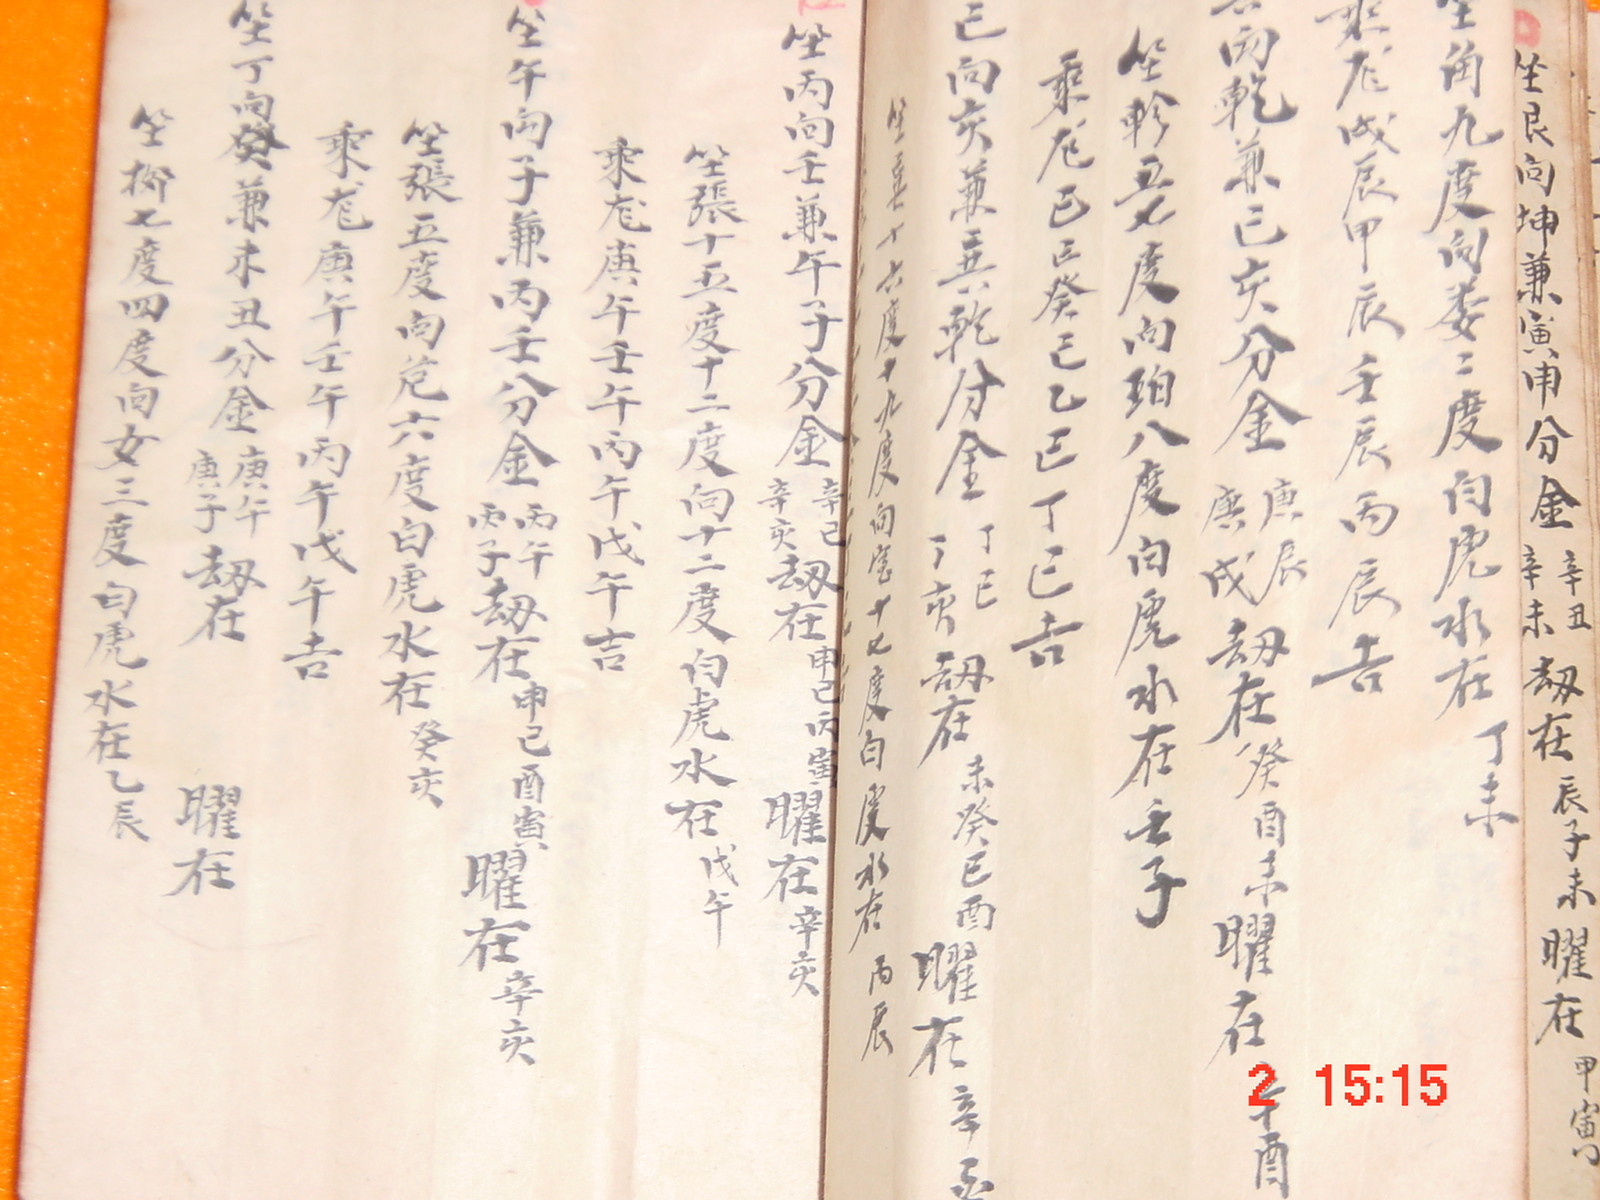 坐艮向坤兼寅申分金辛丑辛未劫在辰子未曜在甲寅
坐角九度向婁二度白虎水在丁未
乘龙戊辰甲辰壬辰丙辰吉
向乾兼巳亥分金庚辰庚戌劫在癸酉未曜在午酉
坐軫五七度向珀八度白虎水在壬子
乘龙己巳癸巳乙巳丁巳吉
巳向亥兼巽乾分金丁巳丁亥劫在未癸巳酉曜在辛
十六度十九度向室十七度白虎水在丙辰
坐丙向壬兼午子分金辛巳辛亥劫在申巳丙寅曜在辛亥
坐張十五度十二度向十二度白虎水在戊午
乘龙庚午壬午丙午戊午吉
坐午向子兼丙壬分金丙午丙子劫在申巳酉寅曜在辛亥
坐張五度向危六度白虎水在癸亥
乘龙庚午壬午丙午戊午吉
坐丁向癸兼未丑分金庚午庚子劫在曜在
坐柳七度四度向女三度白虎水在乙辰
2 15:15